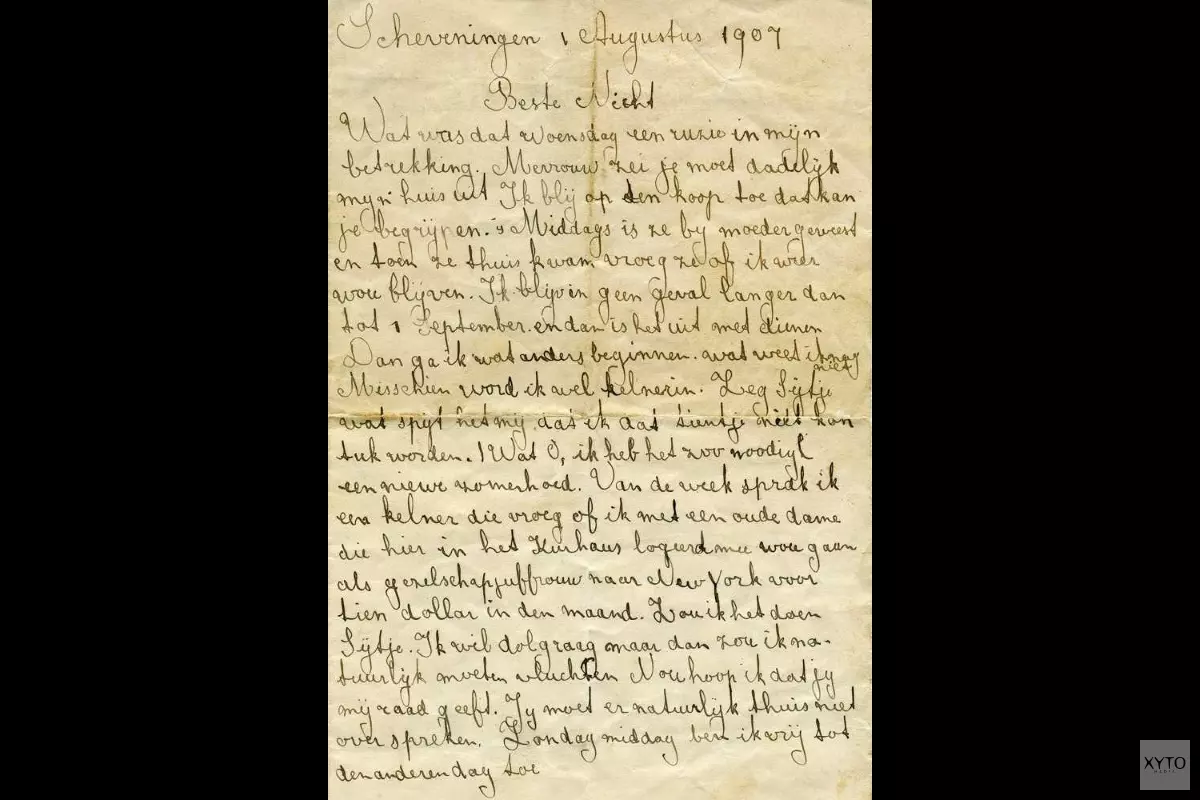 Scheveningen 1 Augustus 1907
Beste Nicht
Wat was dat Woensdag een ruzie in mijn
betrekking. Mevrouw zei je moet dadelijk
mijn huis uit Ik blij op den koop toe dat kan
je begrijpen. 's Middags is ze by moeder geweest
en toen ze thuis kwam vroeg ze of ik weer
wou blijven. Ik blijf in geen geval langer dan
tot 1 September. en dan is het uit met dienen
Dan ga ik wat anders beginnen. wat weet ik nog
niet
Misschien word ik wel kelnerin. Zeg Sijtje
wat spijt het mij dat ik dat tientje niet kon
tuk worden. Wat O, ik heb het zoo noodig
een nieuwe zomerhoed. Van de week sprak ik
een kelner die vroeg of ik met een oude dame
die hier in het Kurhaus logeerd mee wou gaan
als gezelschapjuffrouw naar New York voor
tien dollar in den maand. Zou ik het doen
Sijtje. Ik wil dolgraag maar dan zou ik na-
tuurlijk moeten vluchten Nou hoop ik dat jy
mij raad geeft. Jy moet er natuurlijk thuis niet
over spreken. Zondag middag ben ik vrij tot
den anderen dag toe
XYTO